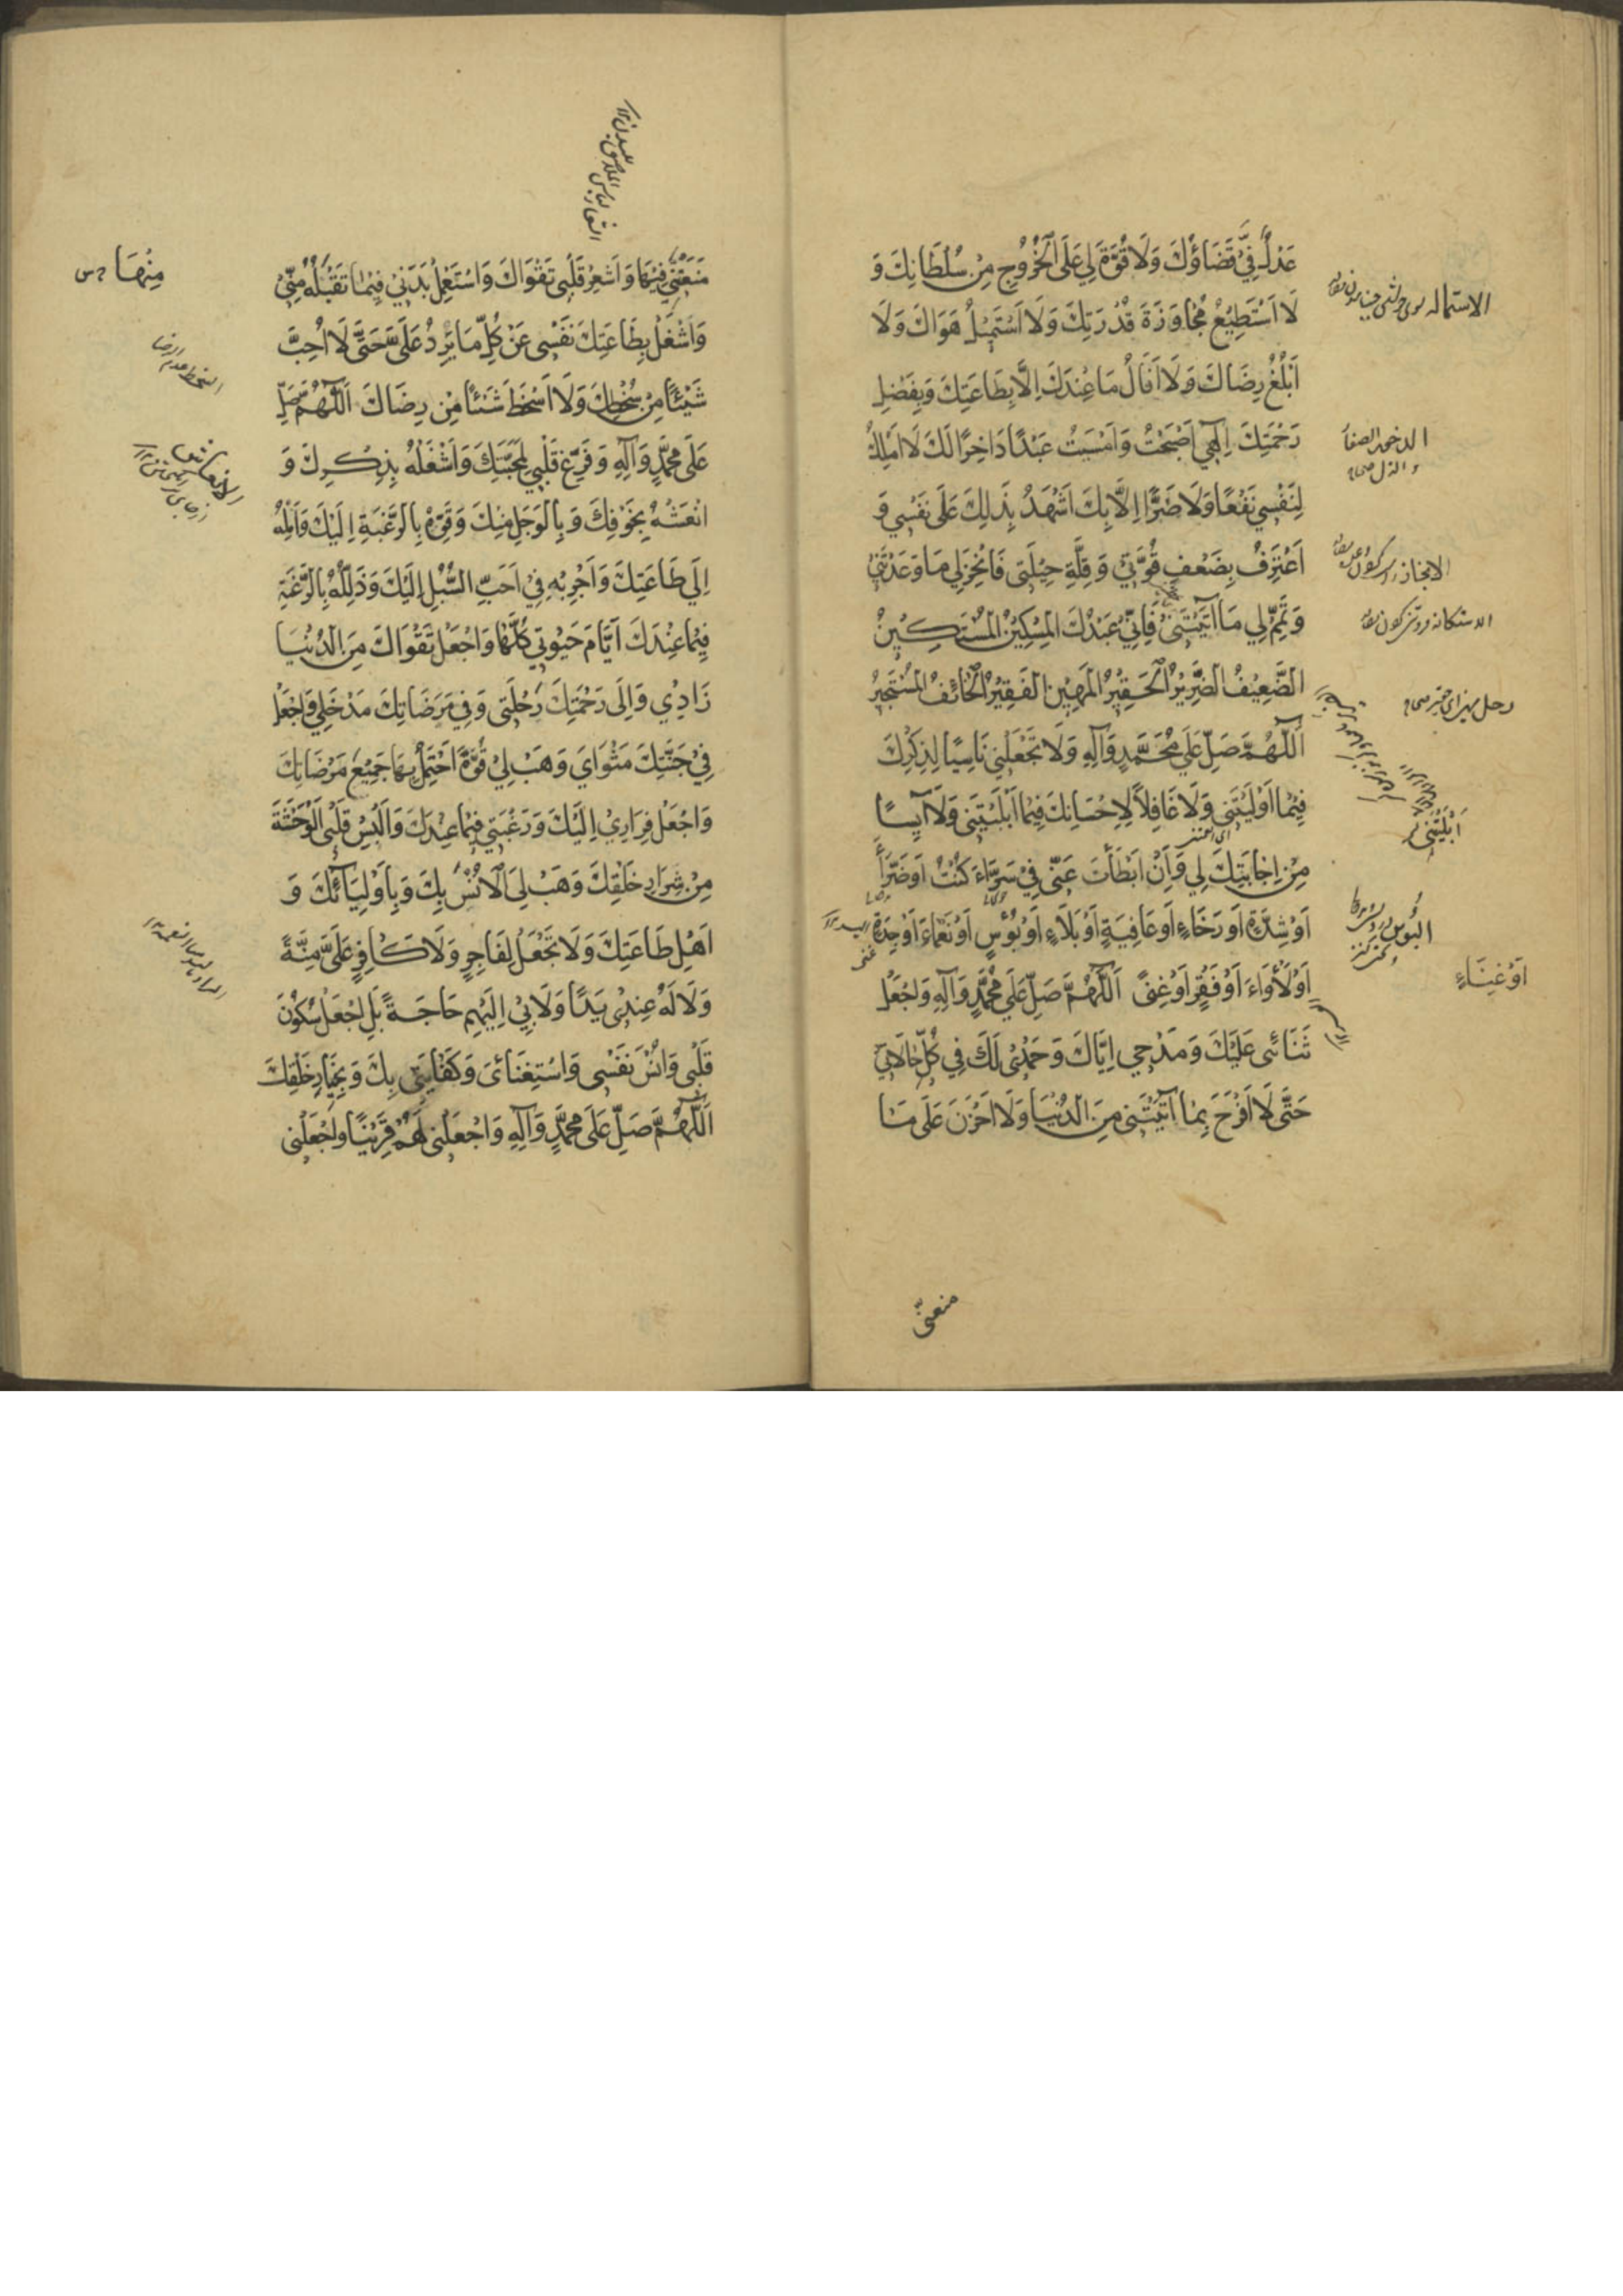 عَدْلٌ فِيَّ قَضَاؤُكَ وَلَا قُوَّةَ لِي عَلَى الْخُرُوجِ مِنْ سُلْطَانِكَ وَ
لَا اَسْتَطِيعُ مُجَاوَزَةَ قُدْرَتِكَ وَلَا اَسْتَمِيلُ هَوَاكَ وَلَا
اَبْلُغُ رِضَاكَ وَلَا اَنَالُ مَا عِنْدَكَ اِلَّا بِطَاعَتِكَ وَبِفَضْلِ
رَحْمَتِكَ اِلٰهِي اَصْبَحْتُ وَاَمْسَيْتُ عَبْدًا دَاخِرًا لَكَ لَا اَمْلِكُ
لِنَفْسِي نَفْعًا وَلَا ضَرًّا اِلَّا بِكَ اَشْهَدُ بِذَلِكَ عَلَى نَفْسِي وَ
اَعْتَرِفُ بِضَعْفِ قُوَّتِي وَقِلَّةِ حِيلَتِي فَانْجِزْ لِي مَا وَعَدْتَنِي
وَتَمِّمْ لِي مَا آتَيْتَنِي فَاِنِّي عَبْدُكَ الْمِسْكِينُ الْمُسْتَكِينُ
الضَّعِيفُ الضَّرِيرُ الْحَقِيرُ الْمَهِينُ الْفَقِيرُ الْخَائِفُ الْمُسْتَجِيرُ
اَللّٰهُمَّ صَلِّ عَلَى مُحَمَّدٍ وَآلِهِ وَلَا تَجْعَلْنِي نَاسِيًا لِذِكْرِكَ
فِيمَا اَوْلَيْتَنِي وَلَا غَافِلًا لِاِحْسَانِكَ فِيمَا اَبْلَيْتَنِي وَلَا آيِسًا
مِنْ اِجَابَتِكَ لِي وَاِنْ اَبْطَأَتْ عَنِّي فِي سَرَّاءَ كُنْتُ اَوْ ضَرَّاءَ
اَوْ شِدَّةٍ اَوْ رَخَاءٍ اَوْ عَافِيَةٍ اَوْ بَلَاءٍ اَوْ بُؤْسٍ اَوْ نَعْمَاءَ اَوْ جِدَةٍ
اَوْ لَأْوَاءَ اَوْ فَقْرٍ اَوْ غِنًى اَللّٰهُمَّ صَلِّ عَلَى مُحَمَّدٍ وَآلِهِ وَاجْعَلْ
ثَنَائِي عَلَيْكَ وَمَدْحِي اِيَّاكَ وَحَمْدِي لَكَ فِي كُلِّ حَالَاتِي
حَتَّى لَا اَفْرَحَ بِمَا آتَيْتَنِي مِنَ الدُّنْيَا وَلَا اَحْزَنَ عَلَى مَا
اَبْلَيْتَنِي
اَوْ غِنَاءٍ
منعتنی
مَنَعْتَنِي فِيهَا وَاَشْعِرْ قَلْبِي تَقْوَاكَ وَاسْتَعْمِلْ بَدَنِي فِيمَا تَقْبَلُهُ مِنِّي
وَاشْغَلْ بِطَاعَتِكَ نَفْسِي عَنْ كُلِّ مَا يَرِدُ عَلَيَّ حَتَّى لَا اُحِبَّ
شَيْئًا مِنْ سُخْطِكَ وَلَا اَسْخَطَ شَيْئًا مِنْ رِضَاكَ اَللّٰهُمَّ صَلِّ
عَلَى مُحَمَّدٍ وَآلِهِ وَفَرِّغْ قَلْبِي لِمَحَبَّتِكَ وَاشْغَلْهُ بِذِكْرِكَ وَ
انْعَشْهُ بِخَوْفِكَ وَبِالْوَجَلِ مِنْكَ وَقَوِّهِ بِالرَّغْبَةِ اِلَيْكَ وَاَمِلْهُ
اِلَى طَاعَتِكَ وَاَجْرِ بِهِ فِي اَحَبِّ السُّبُلِ اِلَيْكَ وَذَلِّلْهُ بِالرَّغْبَةِ
فِيمَا عِنْدَكَ اَيَّامَ حَيٰوتِي كُلِّهَا وَاجْعَلْ تَقْوَاكَ مِنَ الدُّنْيَا
زَادِي وَاِلَى رَحْمَتِكَ رِحْلَتِي وَفِي مَرْضَاتِكَ مَدْخَلِي وَاجْعَلْ
فِي جَنَّتِكَ مَثْوَايَ وَهَبْ لِي قُوَّةً اَحْتَمِلُ بِهَا جَمِيعَ مَرْضَاتِكَ
وَاجْعَلْ فِرَارِي اِلَيْكَ وَرَغْبَتِي فِيمَا عِنْدَكَ وَاَلْبِسْ قَلْبِي الْوَحْشَةَ
مِنْ شِرَارِ خَلْقِكَ وَهَبْ لِيَ الْاُنْسَ بِكَ وَبِاَوْلِيَائِكَ وَ
اَهْلِ طَاعَتِكَ وَلَا تَجْعَلْ لِفَاجِرٍ وَلَا كَافِرٍ عَلَيَّ مِنَّةً
وَلَا لَهُ عِنْدِي يَدًا وَلَا بِي اِلَيْهِمْ حَاجَةً بَلِ اجْعَلْ سُكُونَ
قَلْبِي وَاُنْسَ نَفْسِي وَاسْتِغْنَائِي وَكِفَايَتِي بِكَ وَبِخِيَارِ خَلْقِكَ
اَللّٰهُمَّ صَلِّ عَلَى مُحَمَّدٍ وَآلِهِ وَاجْعَلْنِي لَهُمْ قَرِينًا وَاجْعَلْنِي
مِنْهَا